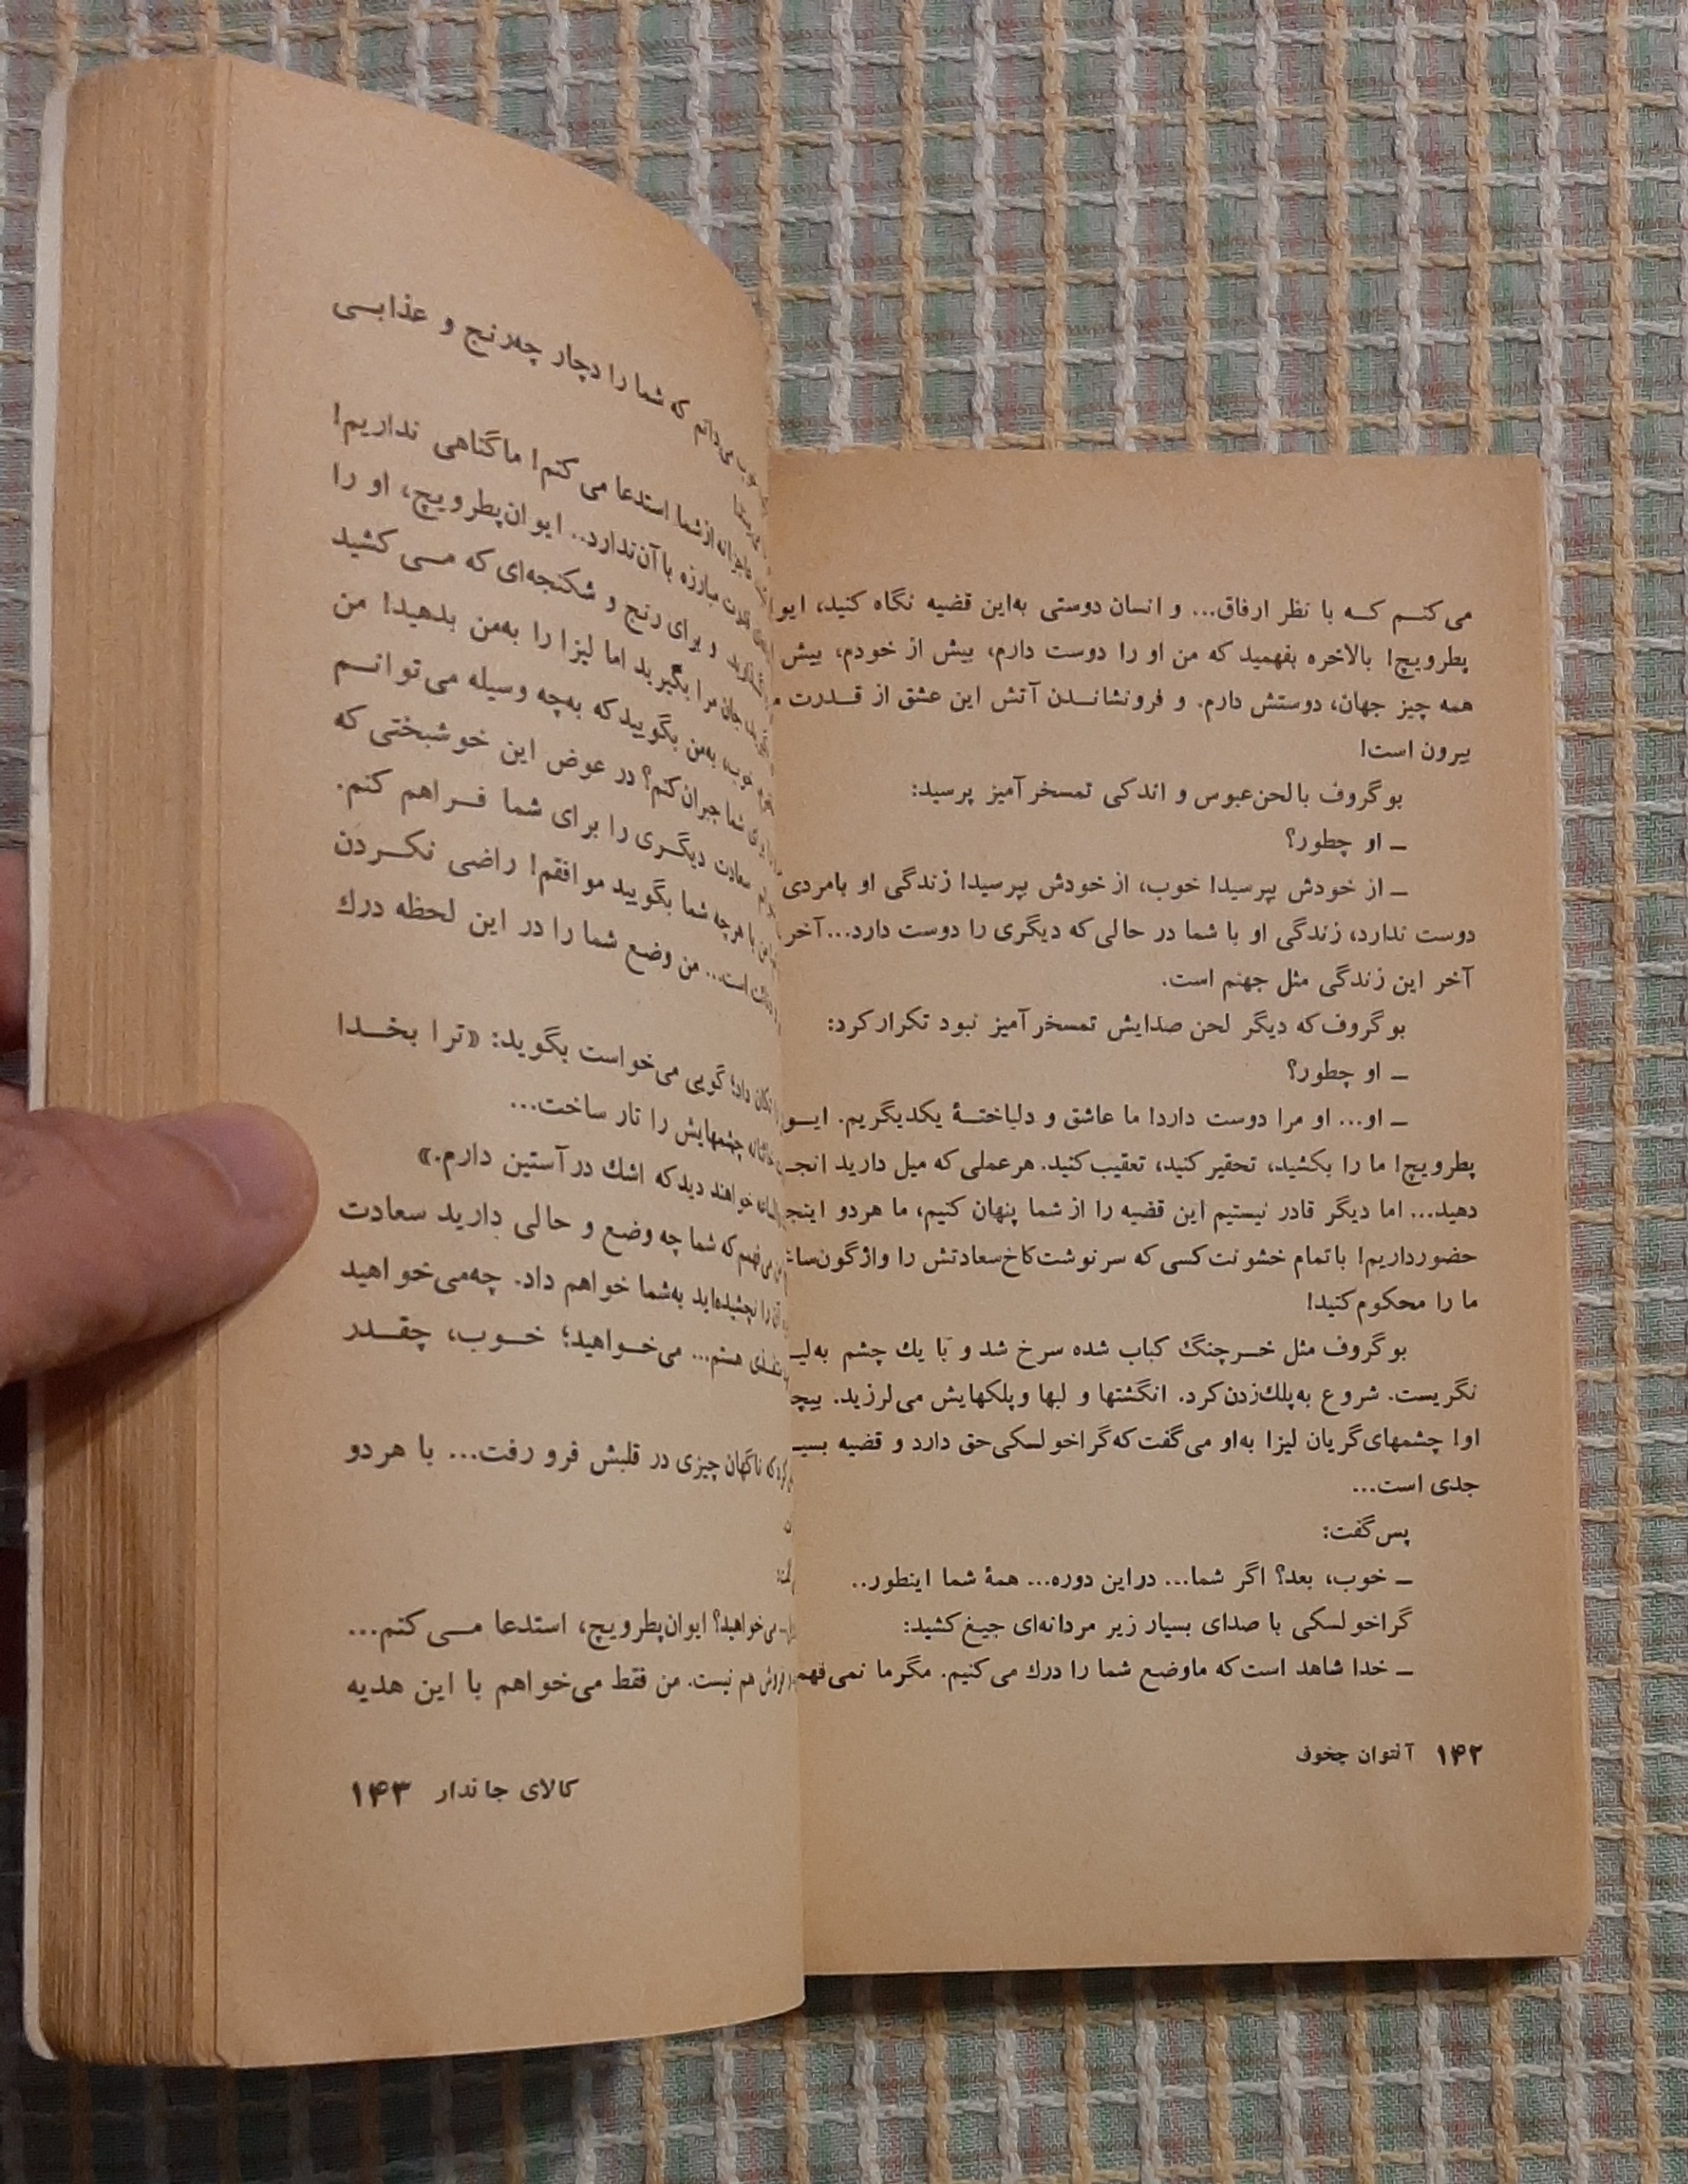 می‌کنـم کـه با نظر ارفاق... و انسان دوستی به‌این قضیه نگاه کنید، ایو
پطرویچ! بالاخره بفهمید که من او را دوست دارم، بیش از خودم، بیش
همه چیز جهان، دوستش دارم. و فرونشانـدن آتش این عشق از قـدرت
بیرون است!
بوگروف بالحن‌عبوس و اندکی تمسخرآمیز پرسید:
ـ او چطور؟
ـ از خودش بپرسید! خوب، از خودش بپرسید! زندگی او بامردی
دوست ندارد، زندگی او با شما در حالی‌که دیگری را دوست دارد...آخر
آخر این زندگی مثل جهنم است.
بوگروف‌که دیگر لحن صدایش تمسخرآمیز نبود تکرارکرد:
ـ او چطور؟
ـ او... او مرا دوست دارد! ما عاشق و دلباختـۀ یکدیگریم. ایـو
پطرویچ! ما را بکشید، تحقیر کنید، تعقیب‌کنید. هرعملی‌که میل دارید انجـ
دهید... اما دیگر قادر نیستیم این قضیه را ازشما پنهان کنیم، ما هردو اینجـ
حضورداریم! باتمام خشونت‌کسی که سرنوشت‌کاخ‌سعادتش را واژگون‌سا
ما را محکوم‌کنید!
بوگروف مثل خـرچنگ کباب شده سرخ شد و با یك چشم به‌لیـ
نگریست. شروع به‌پلك‌زدن‌کرد. انگشتها و لبها وپلکهایش می‌لرزید. بیچـ
او! چشمهای‌گریان لیزا به‌او می‌گفت‌که‌گراخولسکی‌حق دارد و قضیه بسیـ
جدی است...
پس‌گفت:
ـ خوب، بعد؟ اگر شما... دراین دوره... همۀ شما اینطور..
گراخولسکی با صدای بسیار زیر مردانه‌ای جیغ‌کشید:
ـ خدا شاهد است‌که ماوضع شما را درك می‌کنیم. مگرما نمی‌فهمـ
۱۴۲ آنتوان چخوف
می‌دانم که شما را دچار چه‌رنج و عذابـی
ازشما استدعا می‌کنم! ماگناهی نداریم!
قدرت مبارزه با آن‌ندارد.. ایوان‌پطرویچ، او را
و برای رنج و شکنجه‌ای که مـی کشید
جان مرا بگیرید اما لیزا را به‌من بدهید! من
خوب، به‌من بگوییدکه به‌چه وسیله می‌توانـم
شما جبران‌کنم؟ در عوض این خوشبختی که
سعادت دیگـری را برای شما فـراهم کنم.
با هرچه شما بگویید موافقم! راضی نکـردن
است... من وضع شما را در این لحظه درك
تکان داد؛ گویی می‌خواست بگوید: «ترا بخـدا
چشمهایش را تار ساخت...
خواهند دیدکه اشك درآستین دارم.»
می‌فهمم‌که شما چه وضع و حالی دارید سعادت
آن را نچشیده‌اید به‌شما خواهم داد. چه‌می‌خواهید
هستم... می‌خـواهید؛ خـوب، چقـدر
که ناگهان چیزی در قلبش فرو رفت... با هردو
می‌خواهید؟ ایوان‌پطرویچ، استدعا مـی‌کنم...
فروش هم نیست. من فقط می‌خواهم با این هدیه
کالای جاندار ۱۴۳